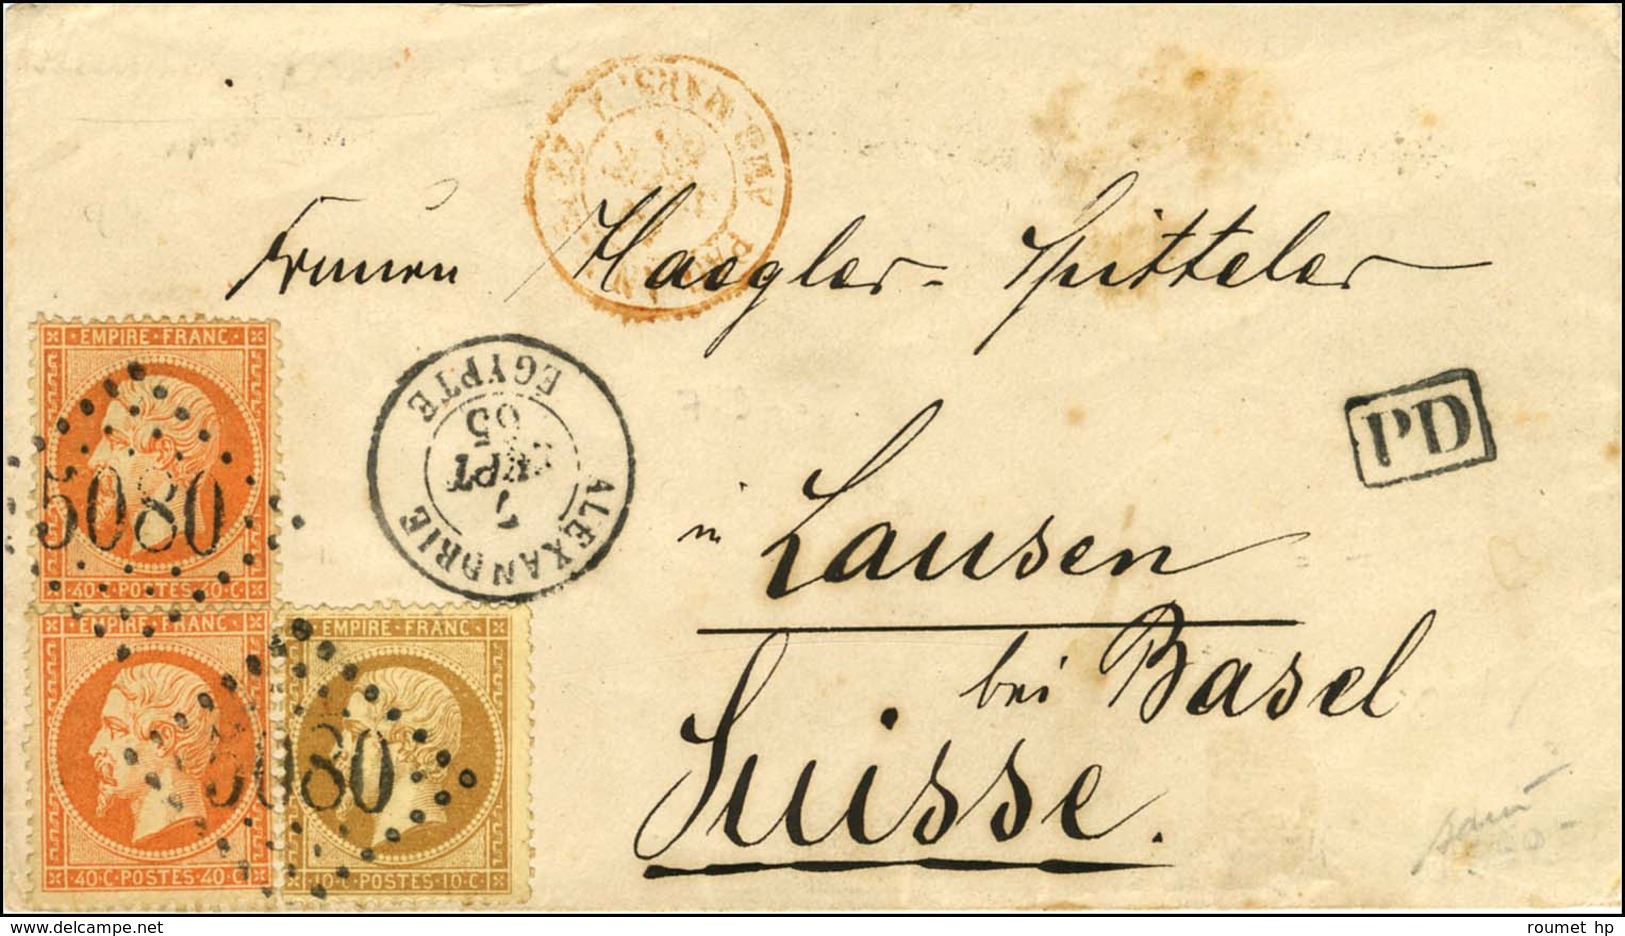 Frauen Haegler-Spitteler
in Lausen
bei Basel
Suisse.
PD
ALEXANDRIE
SEPT
65
EGYPTE
EMPIRE · FRANC
5080
40·C·POSTES·40·C
EMPIRE · FRANC
40·C·POSTES·40·C
EMPIRE · FRANC
5080
10·C·POSTES·10·C
delcampe.net
roumet hp